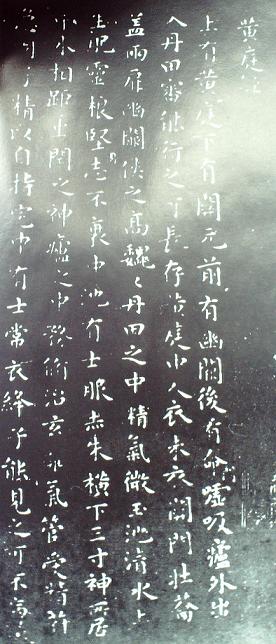 黃庭經
上有黃庭下有關元前有幽闕後有命門噓吸廬外出
入丹田審能行之可長存黃庭中人衣朱衣關門壯籥
蓋兩扉幽闕俠之高巍〻丹田之中精氣微玉池清水上
生肥靈根堅志不衰中池有士服赤朱橫下三寸神所居
中外相距重閉之神廬之中務脩治玄氣管受精符
急固子精以自持宅中有士常衣絳子能見之可不病